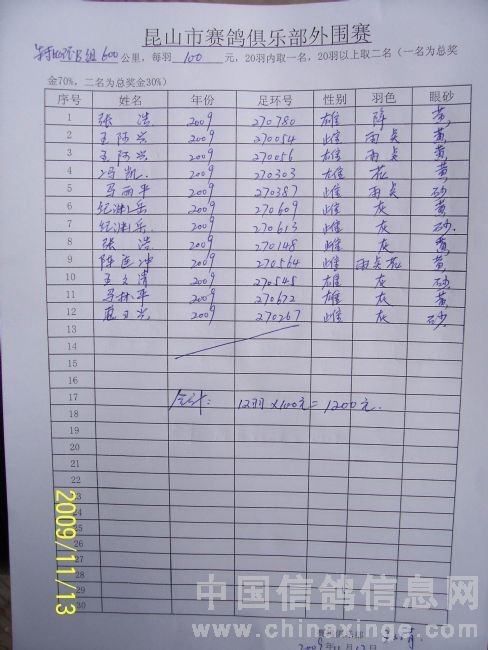 昆山市赛鸽俱乐部外围赛
特比环B组 600 公里，每羽 100 元，20羽内取一名，20羽以上取二名（一名为总奖
金70%，二名为总奖金30%）
序号 姓名 年份 足环号 性别 羽色 眼砂
1 张浩 2009 270780 雄 降 黄
2 王阿兴 2009 270054 雌 雨点 黄
3 王阿兴 2009 270056 雄 雨点 黄
4 冯凯 2009 270303 雄 花 黄
5 马丽平 2009 270387 雌 雨点 砂
6 2009 270609 雌 灰 黄
7 2009 270613 雌 灰 砂
8 张浩 2009 270148 雌 灰 黄
9 陈连冲 2009 270564 雌 雨点花 黄
10 2009 270545 雄 灰 砂
11 马林平 2009 270672 雄 灰 黄
12 2009 270267 雌 灰 砂
13
14
15
16
17 合计： 12羽×100元=1200元.
18
19
20
21
22
23
24
25
26
27
28
29
30
2009/11/13
中国信鸽信息网
www.chinaxinge.com